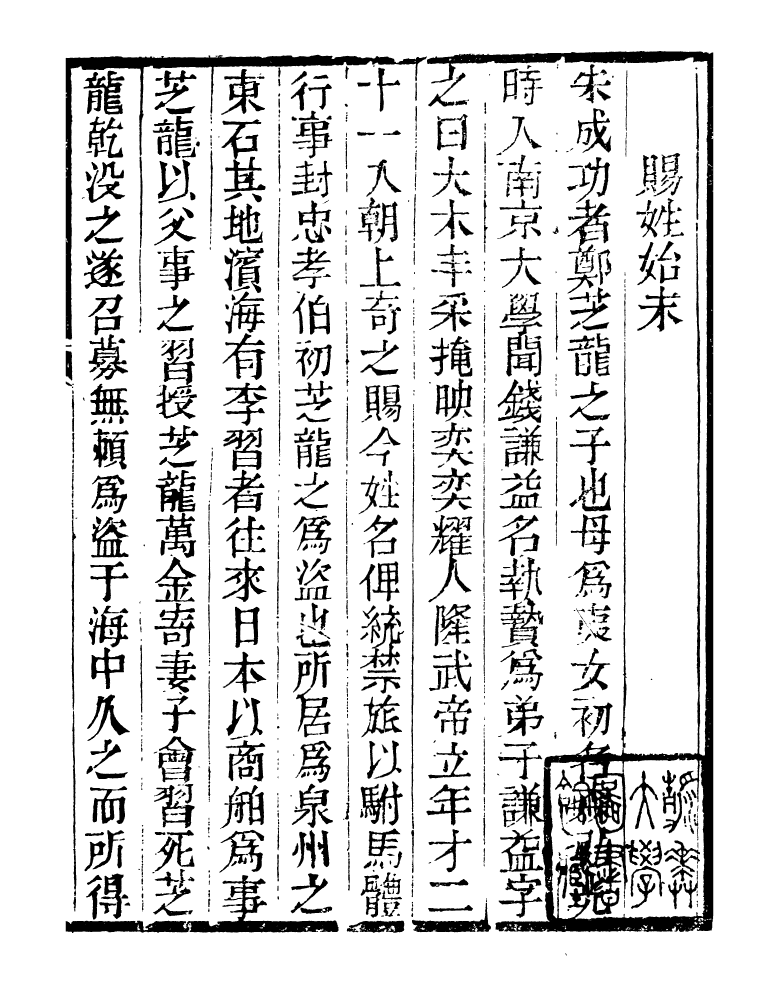 賜姓始末
朱成功者鄭芝龍之子也母爲夷女初名
時入南京大學聞錢謙益名執贄爲弟子謙益字
之曰大木丰采掩映奕奕耀人隆武帝立年才二
十一入朝上奇之賜今姓名俾統禁旅以駙馬體
行事封忠孝伯初芝龍之爲盜也所居爲泉州之
東石其地濱海有李習者往來日本以商舶爲事
芝龍以父事之習授芝龍萬金寄妻子會習死芝
龍乾没之遂召募無賴爲盜于海中久之而所得